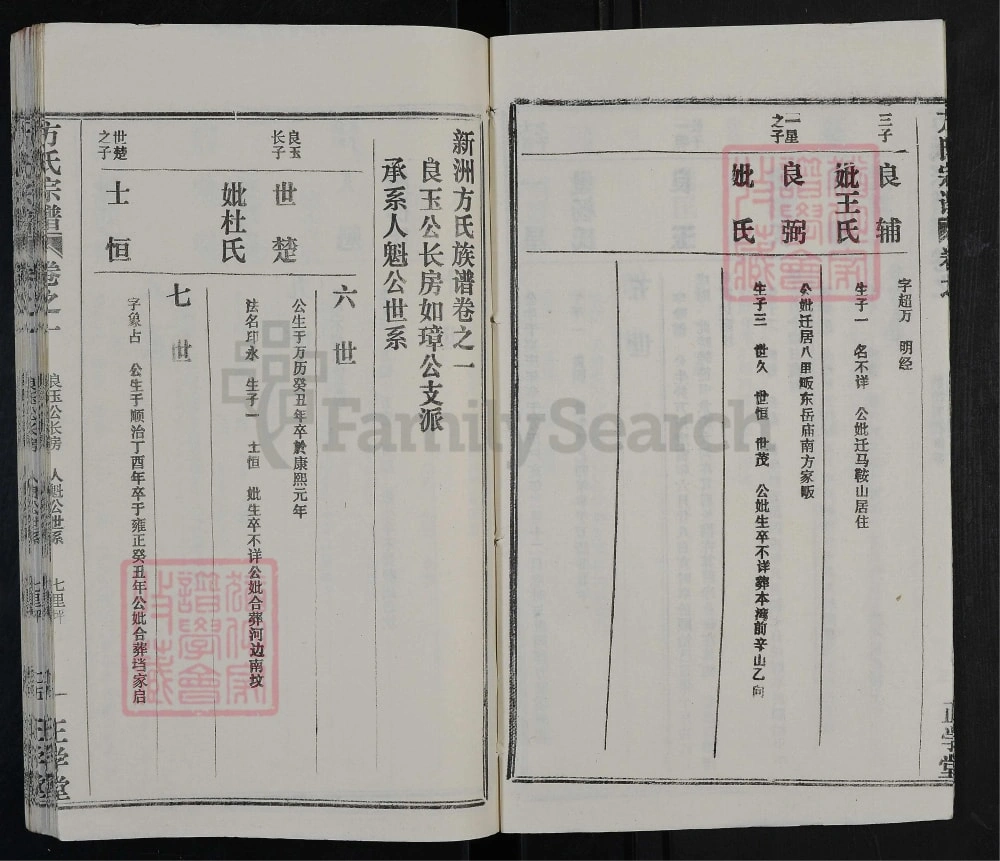 方氏宗谱
卷之一
正学堂
三子
良辅
字超万 明经
妣王氏
生子一 名不详 公妣迁马鞍山居住
一星之子
良弼
公妣迁居八里畈东岳庙南方家畈
妣氏
生子三 世久 世恒 世茂 公妣生卒不详葬本湾前辛山乙向
新洲方氏族谱卷之一
良玉公长房如璋公支派
承系人魁公世系
六世
良玉长子
世楚
公生于万历癸丑年卒於康熙元年
妣杜氏
法名印永 生子一 士恒 妣生卒不详公妣合葬河边南坟
七世
世楚之子
士恒
字象占 公生于顺治丁酉年卒于雍正癸丑年公妣合葬垱家启
方氏宗谱
卷之一
良玉公长房
人魁公世系
七里坪
一
正学堂
FamilySearch